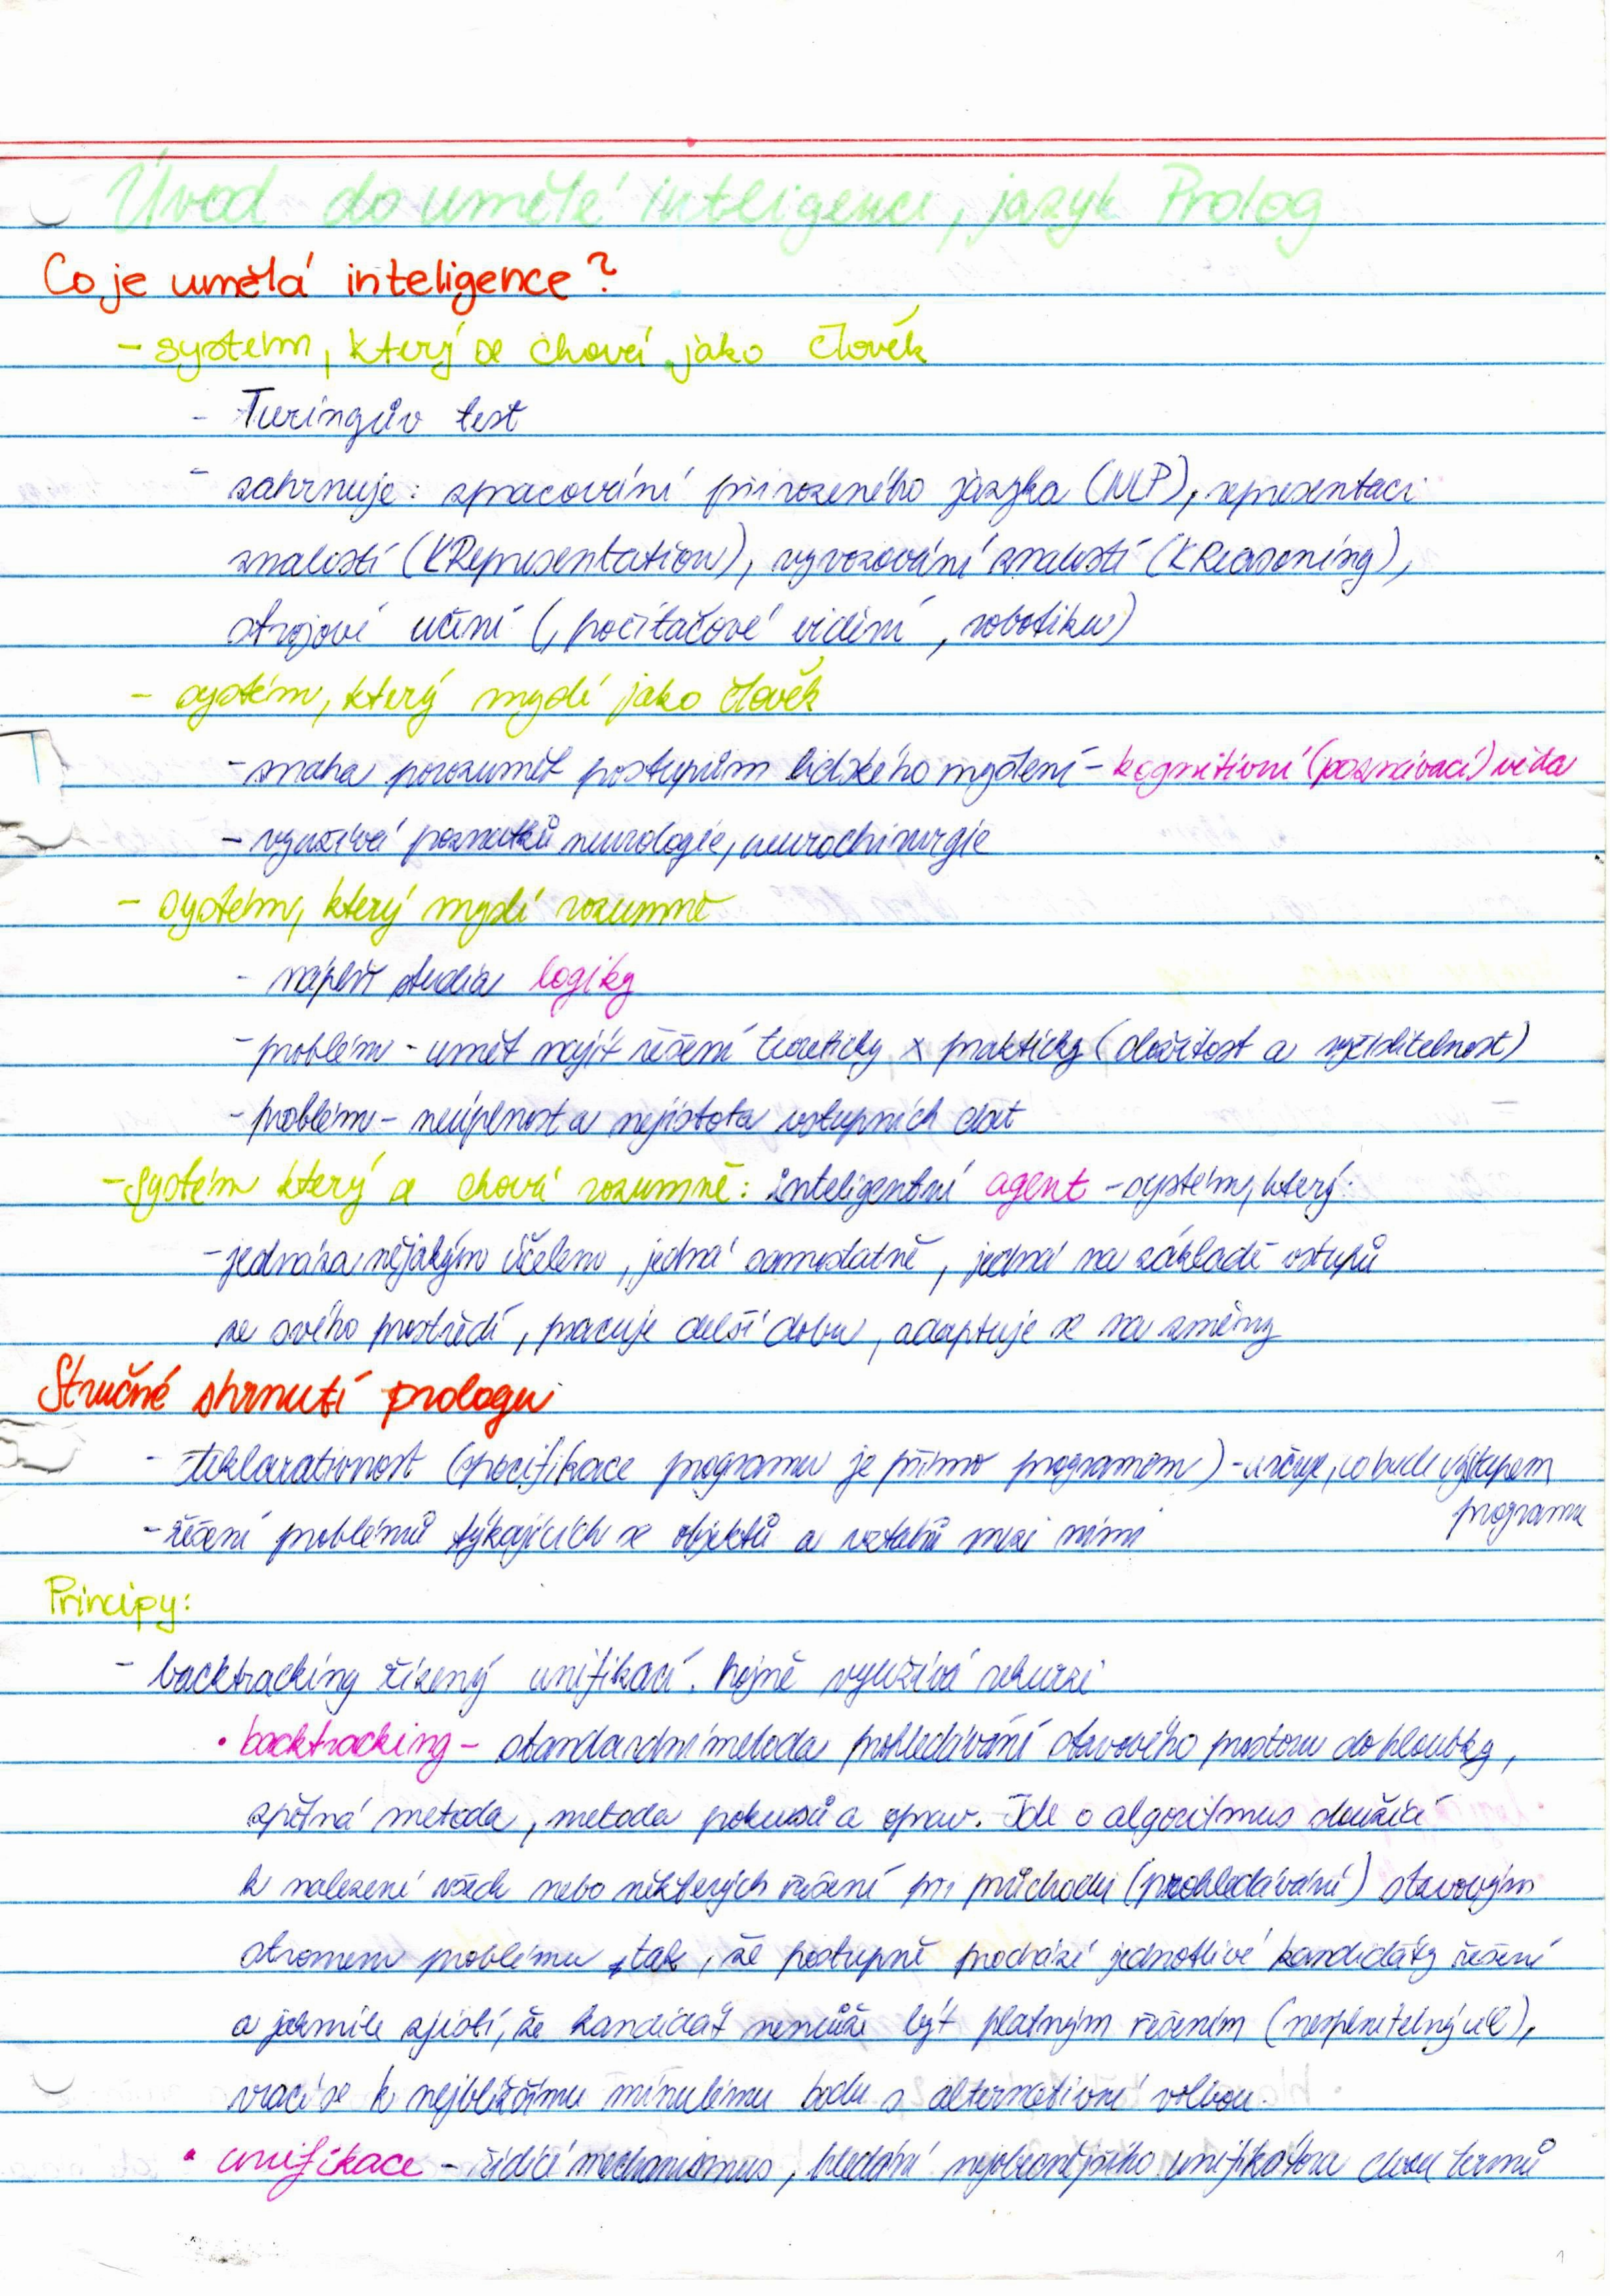 Úvod do umělé inteligence, jazyk Prolog
Co je umělá inteligence?
- systém, který se chová jako člověk
- Turingův test
- zahrnuje: zpracování přirozeného jazyka (NLP), representaci
znalostí (KRepresentation), vyvozování znalostí (KReasoning),
strojové učení (, počítačové vidění, robotiku)
- systém, který myslí jako člověk
- snaha porozumět postupům lidského myšlení - kognitivní (poznávací) věda
- využívá poznatků neurologie, neurochirurgie
- systém, který myslí rozumně
- náplň studia logiky
- problém - umět najít řešení teoreticky x prakticky (složitost a vyčíslitelnost)
- problém - neúplnost a nejistota vstupních dat
- systém který se chová rozumně: inteligentní agent - systém, který:
- jedná za nějakým účelem, jedná samostatně, jedná na základě vstupů
ze svého prostředí, pracuje delší dobu, adaptuje se na změny
Stručné shrnutí prologu
- deklarativnost (specifikace programu je přímo programem) - určuje, co bude výstupem
programu
- řešení problémů týkajících se objektů a vztahů mezi nimi
Principy:
- backtracking řízený unifikací. hojně využívá rekurzi
• backtracking - standardní metoda prohledávání stavového prostoru do hloubky,
zpětná metoda, metoda pokusů a oprav. Jde o algoritmus sloužící
k nalezení všech nebo některých řešení při průchodu (prohledávání) stavovým
stromem problému, tak, že postupně prochází jednotlivé kandidáty řešení
a jakmile zjistí, že kandidát nemůže být platným řešením (nesplnitelný cíl),
vrací se k nejbližšímu minulému bodu s alternativní volbou.
• unifikace - řídící mechanismus, hledání nejobecnějšího unifikátoru dvou termů
1